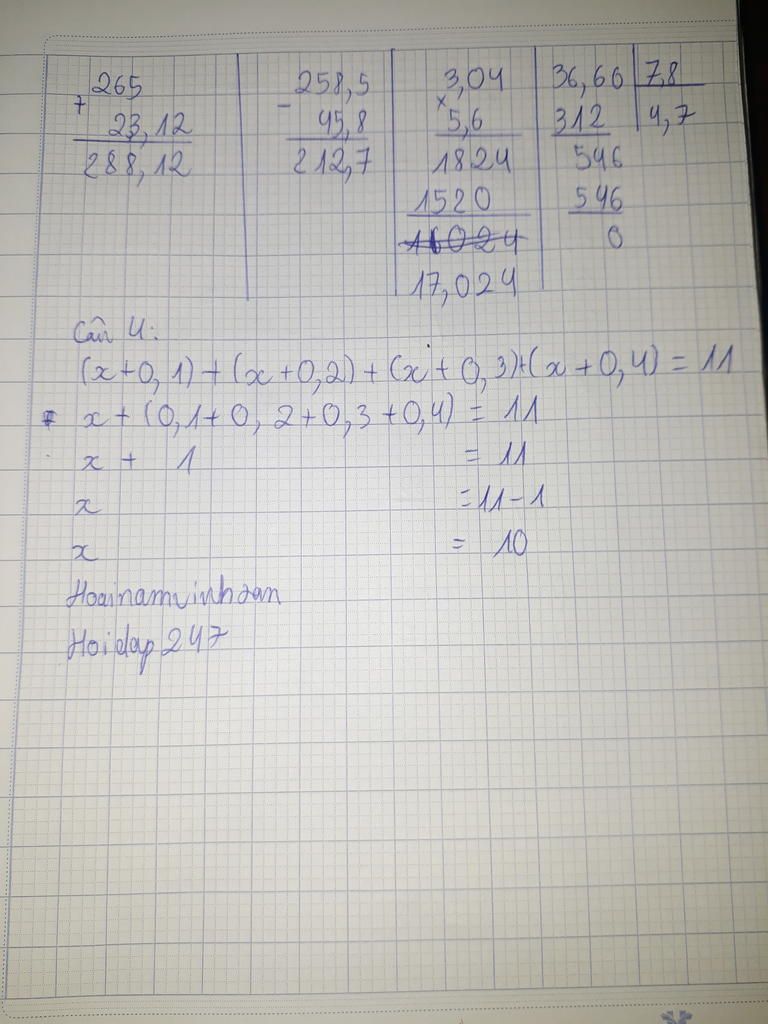 265
+
23,12
288,12
258,5
-
45,8
212,7
3,04
x
5,6
1824
1520
16024
17,024
36,66 7,8
312 4,7
546
546
0
Câu 4:
(x+0,1)+(x+0,2)+(x+0,3)+(x+0,4)=11
x+(0,1+0,2+0,3+0,4)=11
x + 1 = 11
x =11-1
x = 10
Hoainamvinhdan
Hoidap247